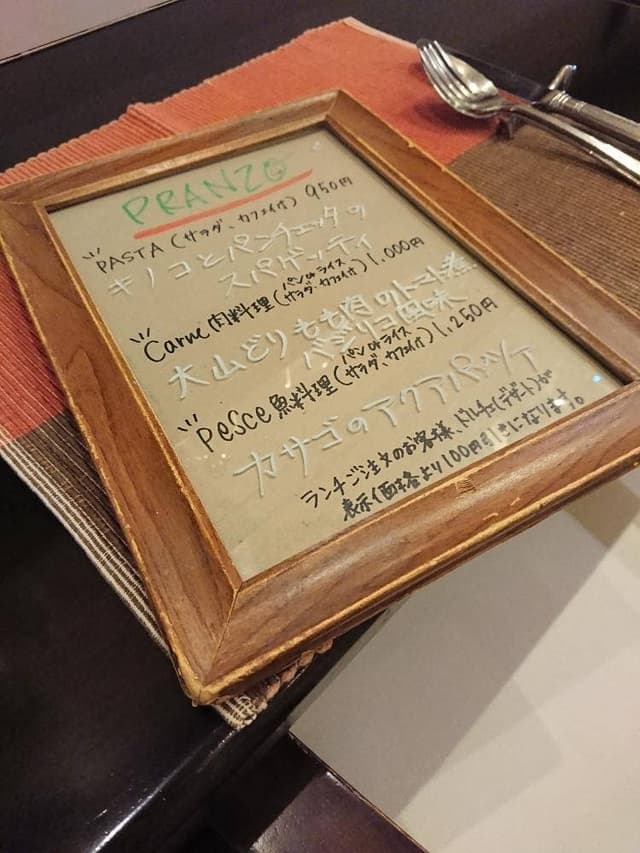 PRANZO
PASTA (サラダ、カフェ付) 950円
キノコとパンチェッタの
スパゲッティ
Carne 肉料理 (パン or ライス サラダ・カフェ付) 1,000円
大山どりもも肉のトマト煮
バジリコ風味
Pesce 魚料理 (パン or ライス サラダ、カフェ付) 1,250円
カサゴのアクアパッツァ
ランチご注文のお客様、ドルチェ(デザート)が
表示価格より100円引きになります。